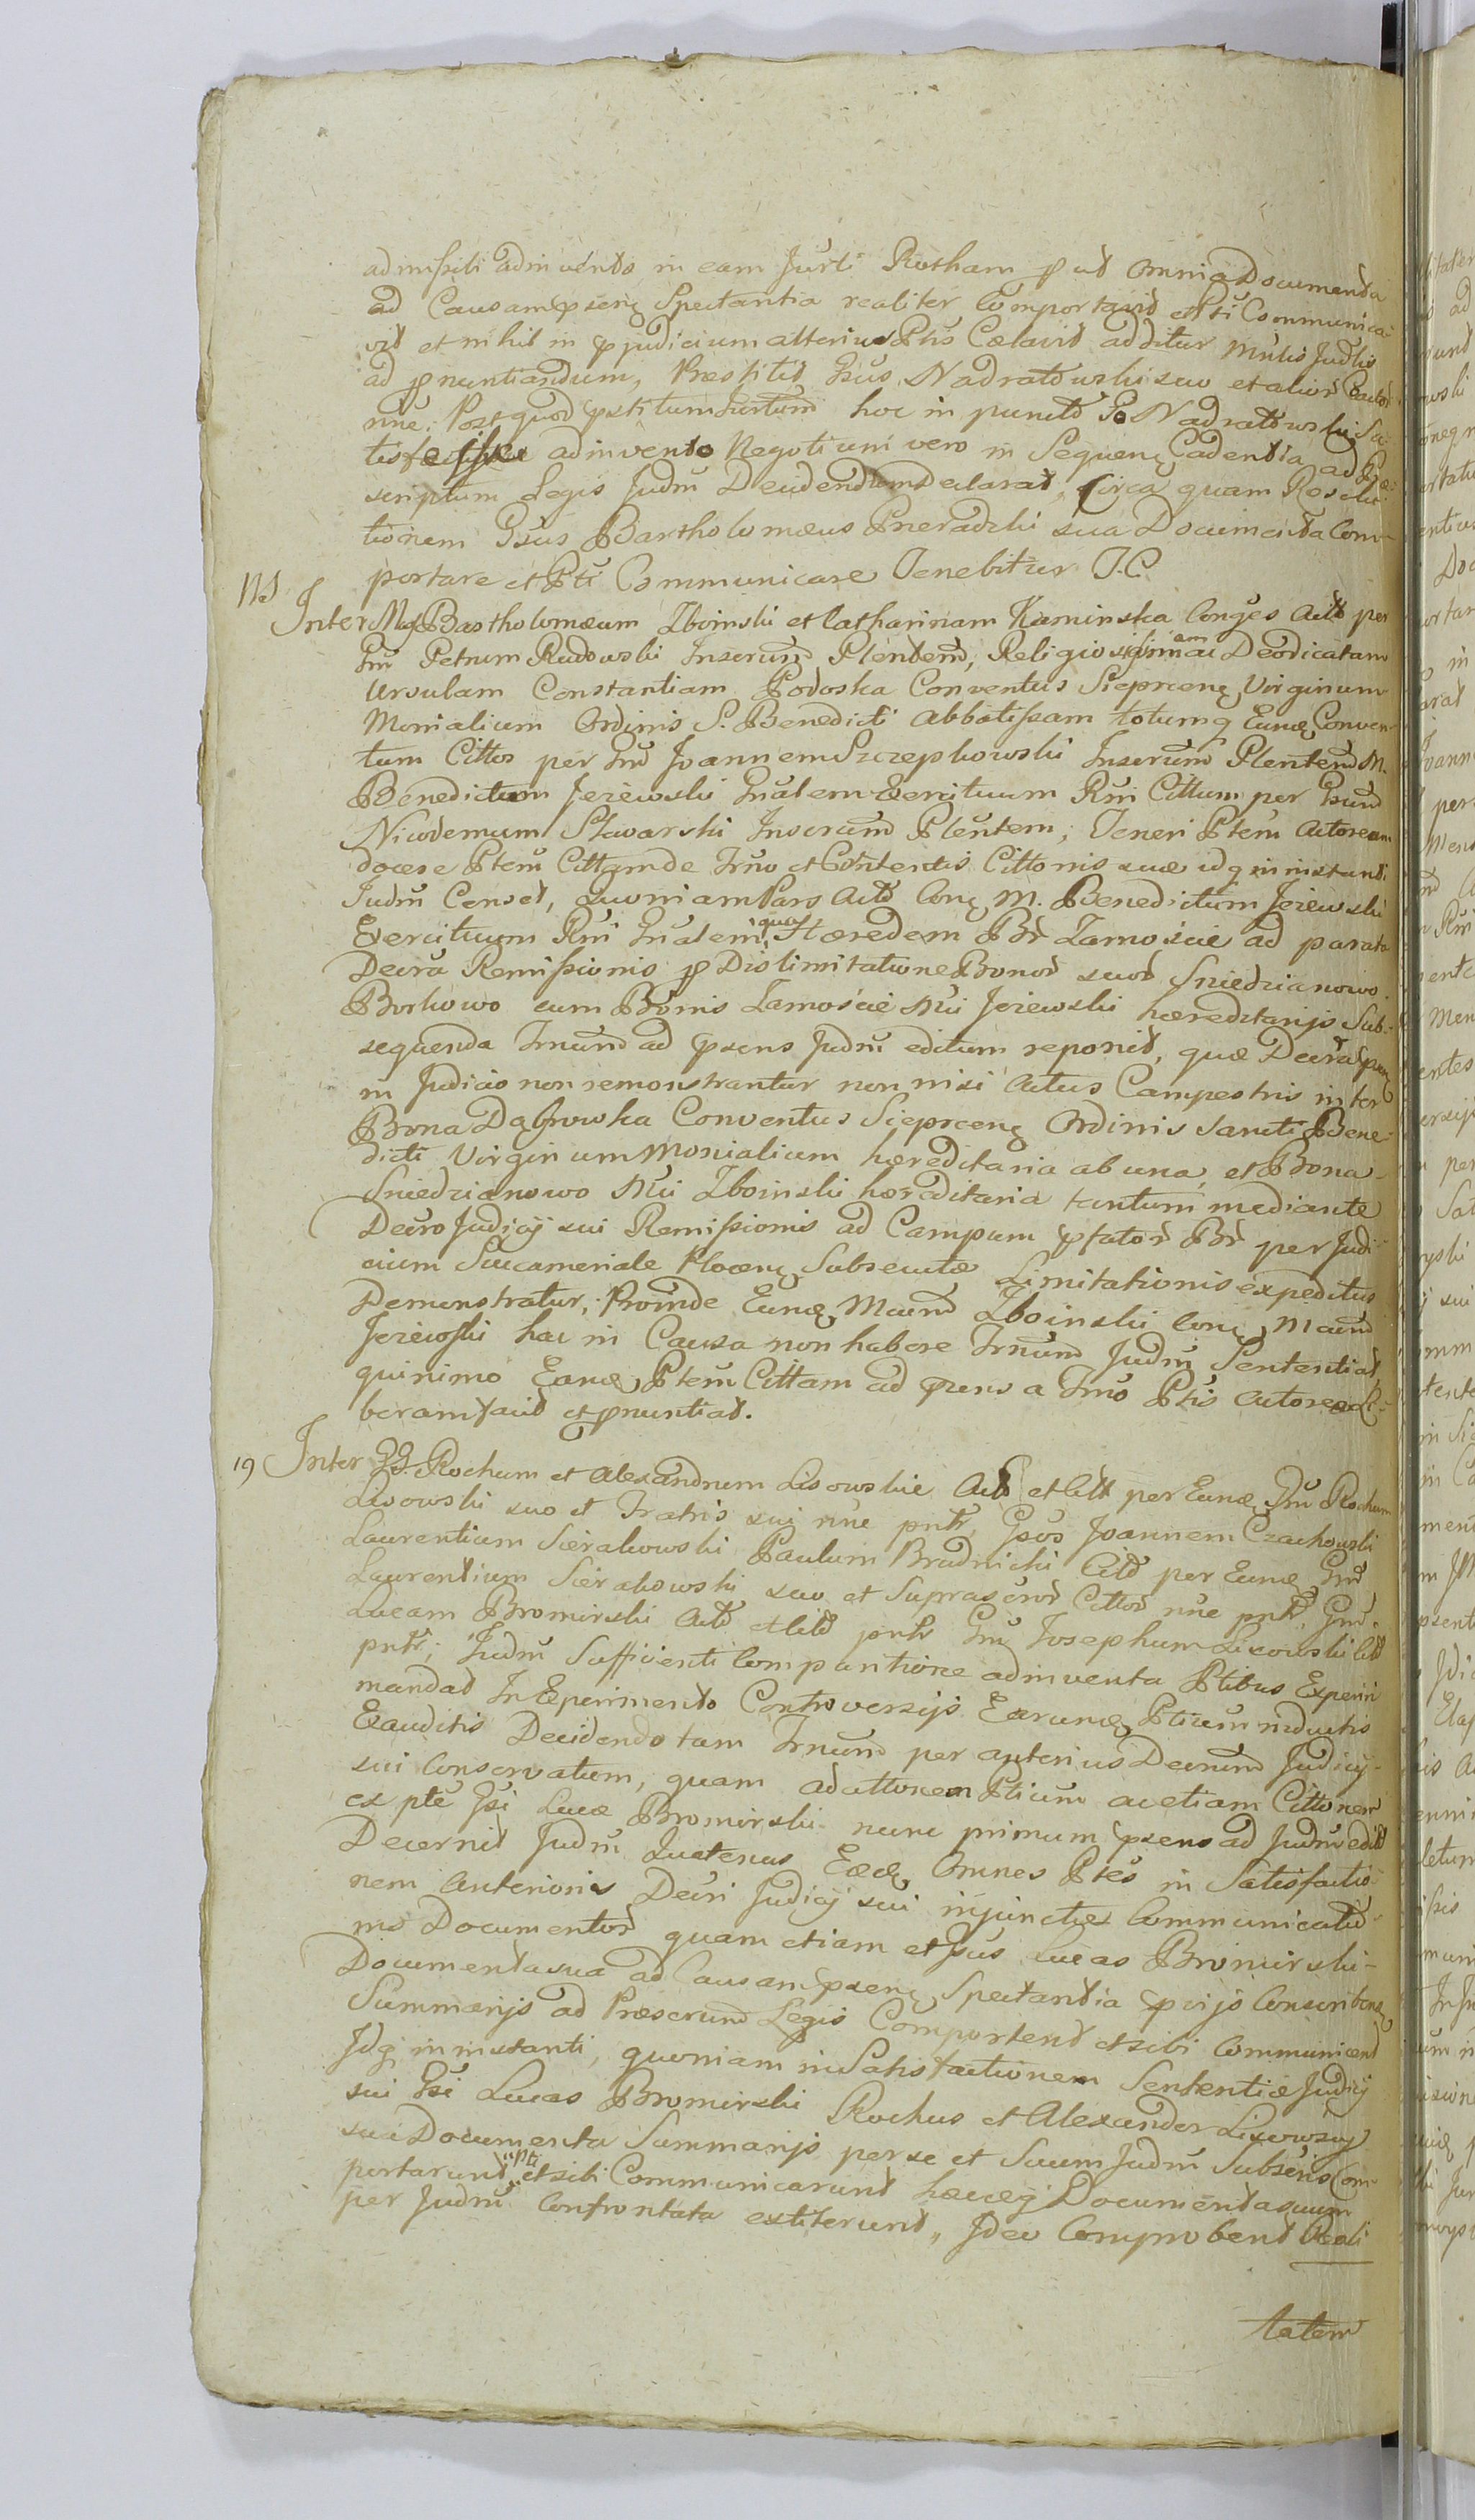 admissili adinvento in eam Jurti Rotham prut omnia Documenta
ad Causam psenq Spectantia realiter Comportavit et Pti Communica-
vit et nihil in pjudicium alterius Ptis Cœlavit additur Mnlis Judlis
ad pnuntiandum, Præstitit Gsus Nadratowski suo et alior
nne. Post quod pstitum hoc in puncto Go Nadratowski Sa-
tisfecisse adinvento Negotium vero in Sequenq Cadentia ad Præ-
scriptum Legis Judm Decidendum Declarat, Circa quam Resolu-
tionem Gsus Bartholomæus Pneradzki sua Documenta Com-
portare et Pti Communicare Tenebitur J.C.
Inter Mgf Bartholomæum Zboinski et Catharinam Kaminska Conges Acto per
Gm Petrum Rudowski Inserum Plentem, Religiosissimam Deodicatam
Ursulam Constantiam Podoska Conventus Sieprcenq Virginum
Monialium Ordinis S. Benedicti Abbatissam totumq Eunq Conven-
tum Cittos per Gm Joannem Szczepkowski Inserum Plentem M.
Benedictum Jeziewski Gnalem Exercituum Rni Cittum per Gsum
Nicodemum Slavarski Inserum Plentem; Teneri Ptem Actoream
docere Ptem Cittam de Trno et Contentis Cittonis suæ idq in instanti
Judm Censet, quoniam Pars Acto Conq M. Benedictum Jeziewski
Exercituum Rni Gnalem qua Hæredem Br Zamoscie ad parata
Decra Remissionis p Dislimitatione Bonor suor Sniedzianowo
Borkowo cum Bonis Zamoscie Mci Jeziewski hæreditarijs Sub-
sequenda Trnum ad psens Judm editum reponit, quæ Decra
in Judicio non remonstrantur non nisi Actus Campestris inter
Bona Dąbrowka Conventus Sieprcenq Ordinis Sancti Bene-
dicti Virginum Monialium hæreditaria ab una, et Bona
Sniedzianowo Mci Zboinski hæreditaria tantum mediante
Decro Judicij sui Remissionis ad Campum pfator Br per Judi-
cium Succameriale Plocenq Subsecutæ Limitationis expeditus
Demonstratur, Proinde Eunq Mcum Zboinski Conq Mcum
Jeziewski hac in Causa non habere Trnum Judm Sententiat,
quinimo Eanq Ptem Cittam ad psens a Trno Ptis Actoreæ Li-
beram facit et pnuntiat.
19 Inter GG. Rochum et Alexandrum Lisowskie Acto et Citt per Eunq Gm Rochum
Lisowski suo et Fratris sui nne pntr, Gsos Joannem Czachowski
Laurentium Sierakowski Paulum Brudnicki Citt per Eunq Gm
Laurentium Sierakowski suo et Suprascror Cittor nne pntr, Gm
Lucam Bromirski Acto et Citt pntr Gm Josephum Lisowski Citt
pntr; Judm Sufficienti Compartione adinventa Ptibus Experiri
mandat In Experimento Controversijs Earunq Ptium inductis
Exauditis Decidendo tam Trnum per anterius Decrum Judicij
sui Conservatum, quam ad attonem Ptium ac etiam Cittonem
ex pte Gsi Lucæ Bromirski nunc primum psens ad Judm edit
Decernit Judm Quatenus Eædq Omnes Ptes in Satisfactio-
nem Anterioris Decri Judicij sui injunctæ Communicatio-
nis Documentor quam etiam et Gsus Lucas Bromirski
Documenta sua ad Causam psenq Spectantia pvijs Conscriptis
Summarijs ad Præscrum Legis Comportent et sibi Communicent
Idq in instanti, quoniam in Satisfactionem Sententiæ Judicij
sui Gsi Lucas Bromirski Rochus et Alexander Lisowscy
sua Documenta Summarijs per se et Suum Judm Subscris Com-
portarunt et sibi Communicarunt hæcq Documenta suum
per Judm Confrontata extiterunt, Ideo Comprobent Reali-
tatem